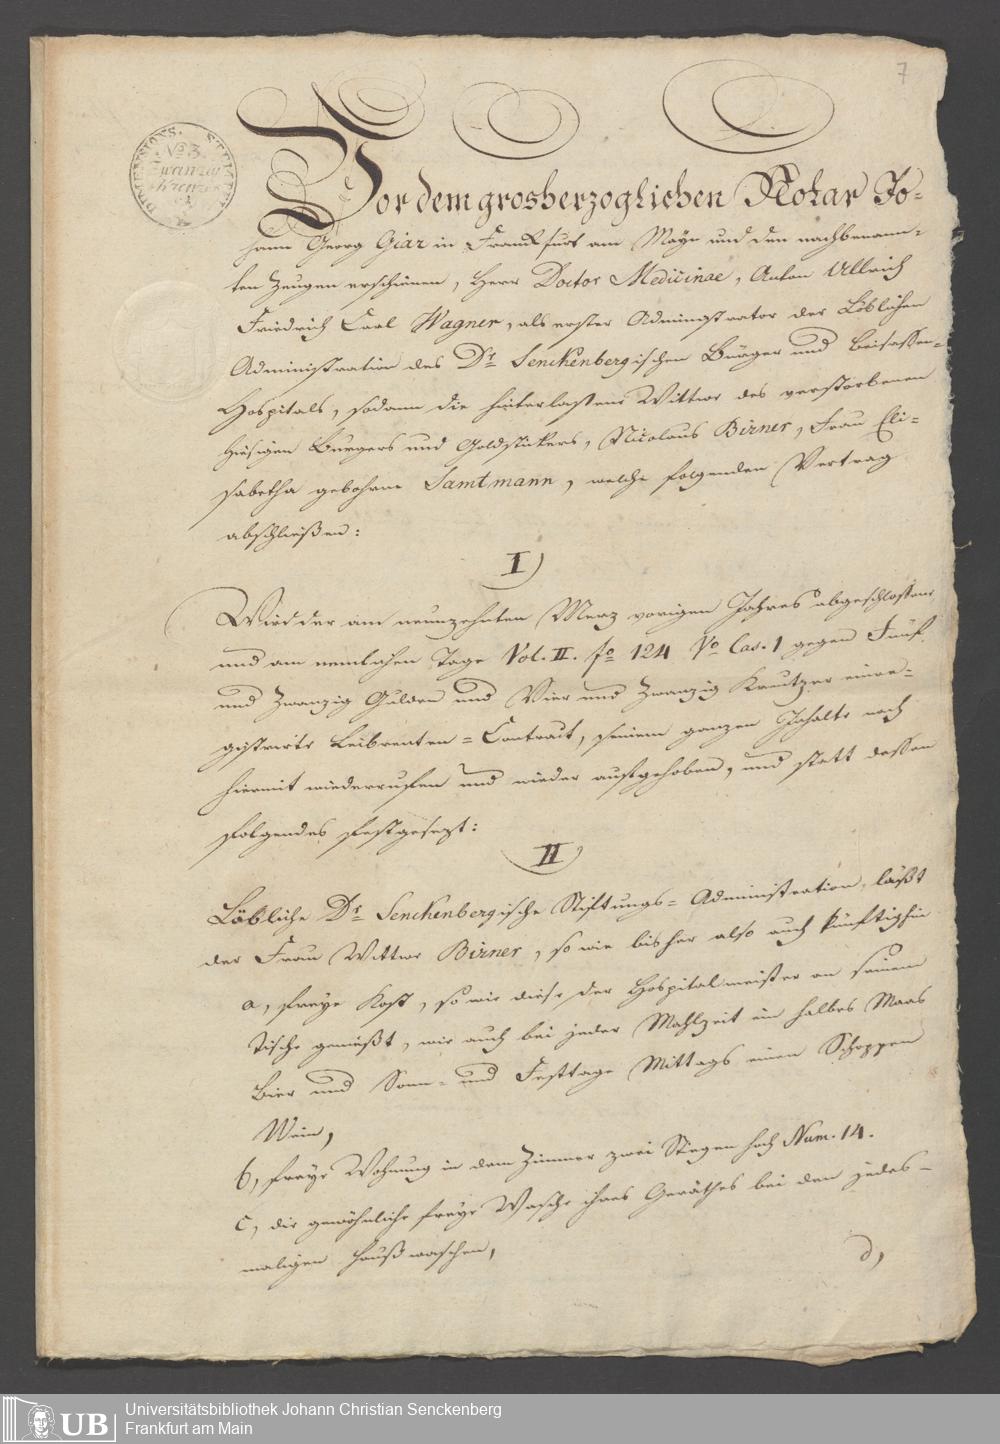 7
DIMENSIONS. STEMPEL
No 3.
Zwanzig
Kreuzer
Vor dem grosherzoglichen Notar Jo-
hann Georg Giar in Frankfurt am Mayn und den nachbenann-
ten Zeugen erschienen, Herr Doctor Medicinae, Anton Ullrich
Friedrich Carl Wagner, als erster Administrator der Löblichen
Administration des Dr Senckenbergischen Bürger und Beisassen-
Hospitals, sodann die hinterlassene Wittwe des verstorbenen
hiesigen Burgers und Goldstickers, Nicolaus Birner, Frau Eli-
sabetha gebohrne Samtmann, welche folgenden Vertrag
abschließen:
I)
Wird der am neunzehnten Merz vorigen Jahres abgeschlossene
und am nemlichen Tage Vol. II. fo 124 Vo Cas. 1 gegen Fünf
und Zwanzig Gulden und Vier und Zwanzig Kreutzer einre-
gistrirte Leibrenten-Contract, seinem ganzen Inhalte nach
hiermit wiederrufen und wieder aufgehoben, und statt dessen
folgendes festgesezt:
II)
Löbliche Dr Senckenbergische Stiftungs-Administration, läßt
der Frau Wittwe Birner, so wie bisher also auch künftighin
a, freye Kost, so wie diese der Hospitalmeister an seinem
Tische genießt, wie auch bei jeder Mahlzeit ein halbes Maas
Bier und Sonn- und Festtage Mittags einen Schoppen
Wein,
b, freye Wohnung in dem Zimmer zwei Stiegen hoch Num. 14.
c, die gewöhnliche freye Wasche ihres Geräthes bei den jedes-
maligen Hauß waschen,
d,
UB
Universitätsbibliothek Johann Christian Senckenberg
Frankfurt am Main